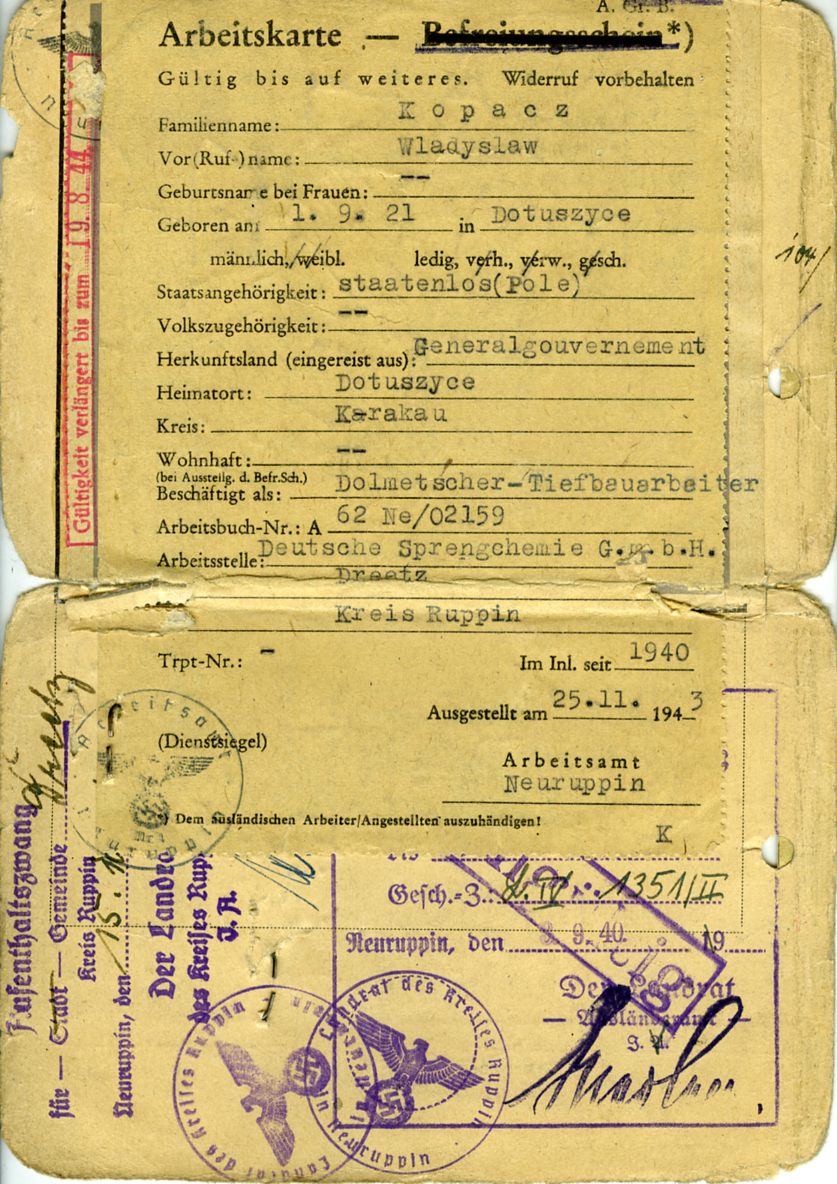 A. Gr. B.
Arbeitskarte — Befreiungsschein*)
Gültig bis auf weiteres. Widerruf vorbehalten
Familienname: Kopacz
Vor(Ruf-)name: Wladyslaw
Geburtsname bei Frauen: --
Geboren am 1. 9. 21 in Dotuszyce
männlich, weibl. ledig, verh., verw., gesch.
Staatsangehörigkeit: staatenlos(Pole)
Volkszugehörigkeit: --
Herkunftsland (eingereist aus): Generalgouvernement
Heimatort: Dotuszyce
Kreis: Karakau
Wohnhaft: --
(bei Ausstellg. d. Befr.Sch.)
Beschäftigt als: Dolmetscher-Tiefbauarbeiter
Arbeitsbuch-Nr.: A 62 Ne/02159
Arbeitsstelle: Deutsche Sprengchemie G.m.b.H.
Dreetz
Kreis Ruppin
Trpt-Nr.: - Im Inl. seit 1940
Ausgestellt am 25.11. 1943
(Dienstsiegel)
Arbeitsamt
Neuruppin
*) Dem ausländischen Arbeiter/Angestellten auszuhändigen!
K
Gültigkeit verlängert bis zum 19. 8. 44
104/
Arbeitsamt
Neuruppin
Aufenthaltszwang
für — Stadt — Gemeinde Dreetz
Kreis Ruppin
Neuruppin, den 15.
Der Landra
des Kreises Rup
I. A.
Gesch.-Z.: IV 1351/II
Neuruppin, den 3. 9. 40 19
Der Landrat
— Ausländeramt —
I. A.
Landrat des Kreises Ruppin
in Neuruppin
Landrat des Kreises Ruppin
in Neuruppin